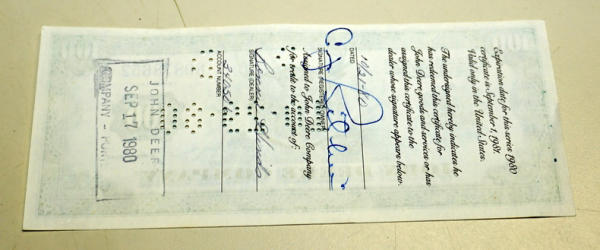 Expiration date for this series 1980
certificate is September 1, 1981.
Valid only in the United States.
The undersigned hereby indicates he
has redeemed this certificate for
John Deere goods and services or has
assigned this certificate to the
dealer whose signature appears below.
DATED
SIGNATURE (REGISTERED OWNER)
Assigned to John Deere Company
for credit to the account of:
SIGNATURE (DEALER)
ACCOUNT NUMBER
JOHN DEERE
SEP 17 1980
COMPANY -